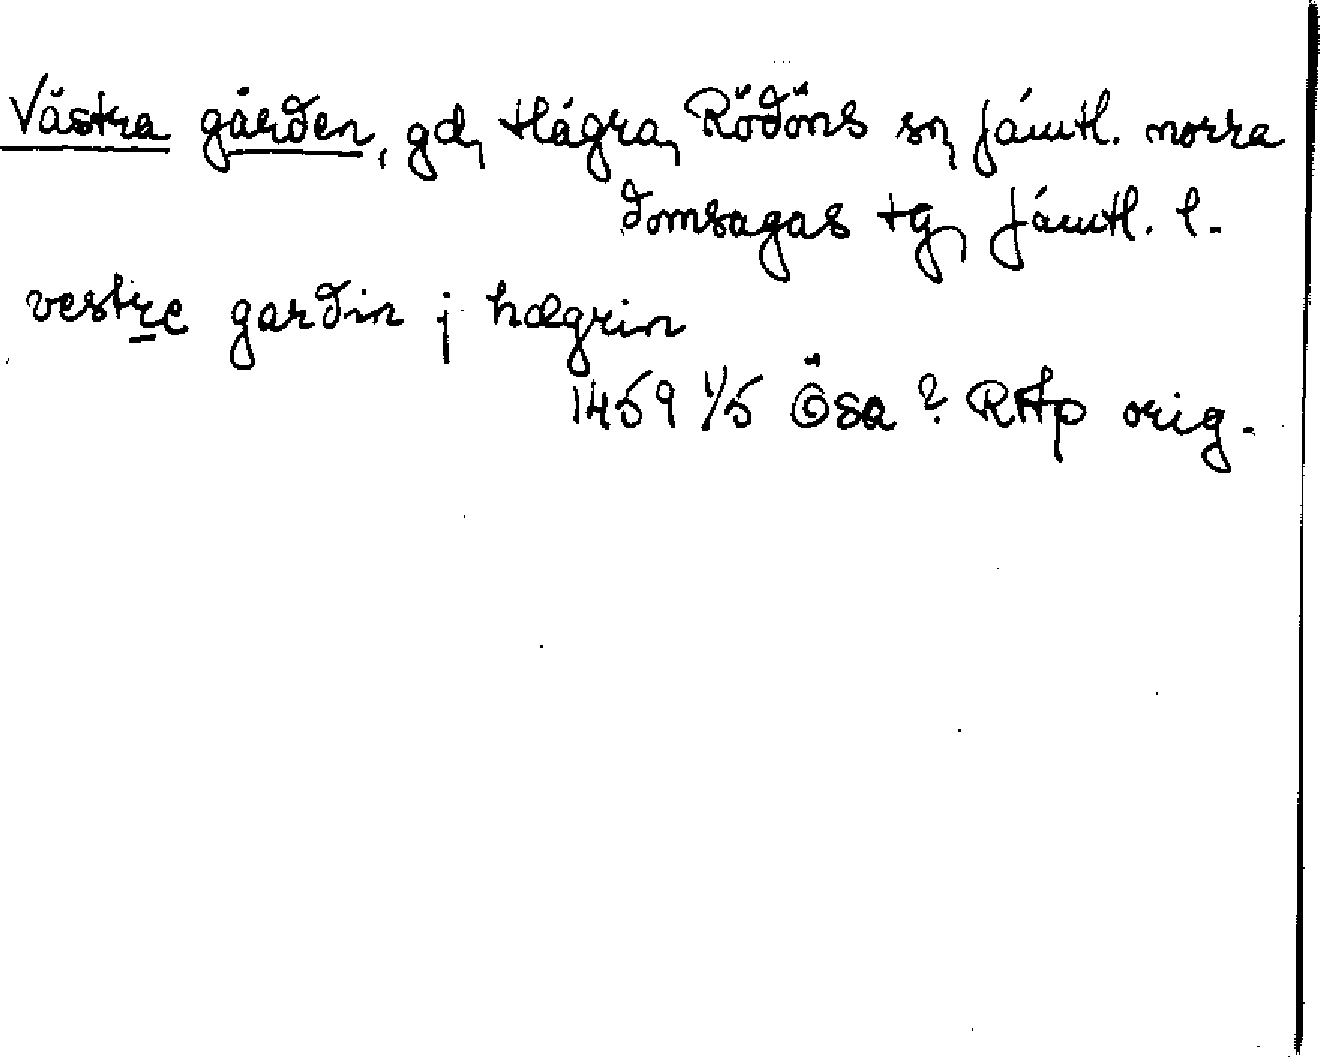 Västra gården, gd, Hägra, Rödöns sn, Jämtl. norra
domsagas tg, Jämtl. l.
vestre gardin j hægrin
1459 1/5 Ösa? RAp orig.